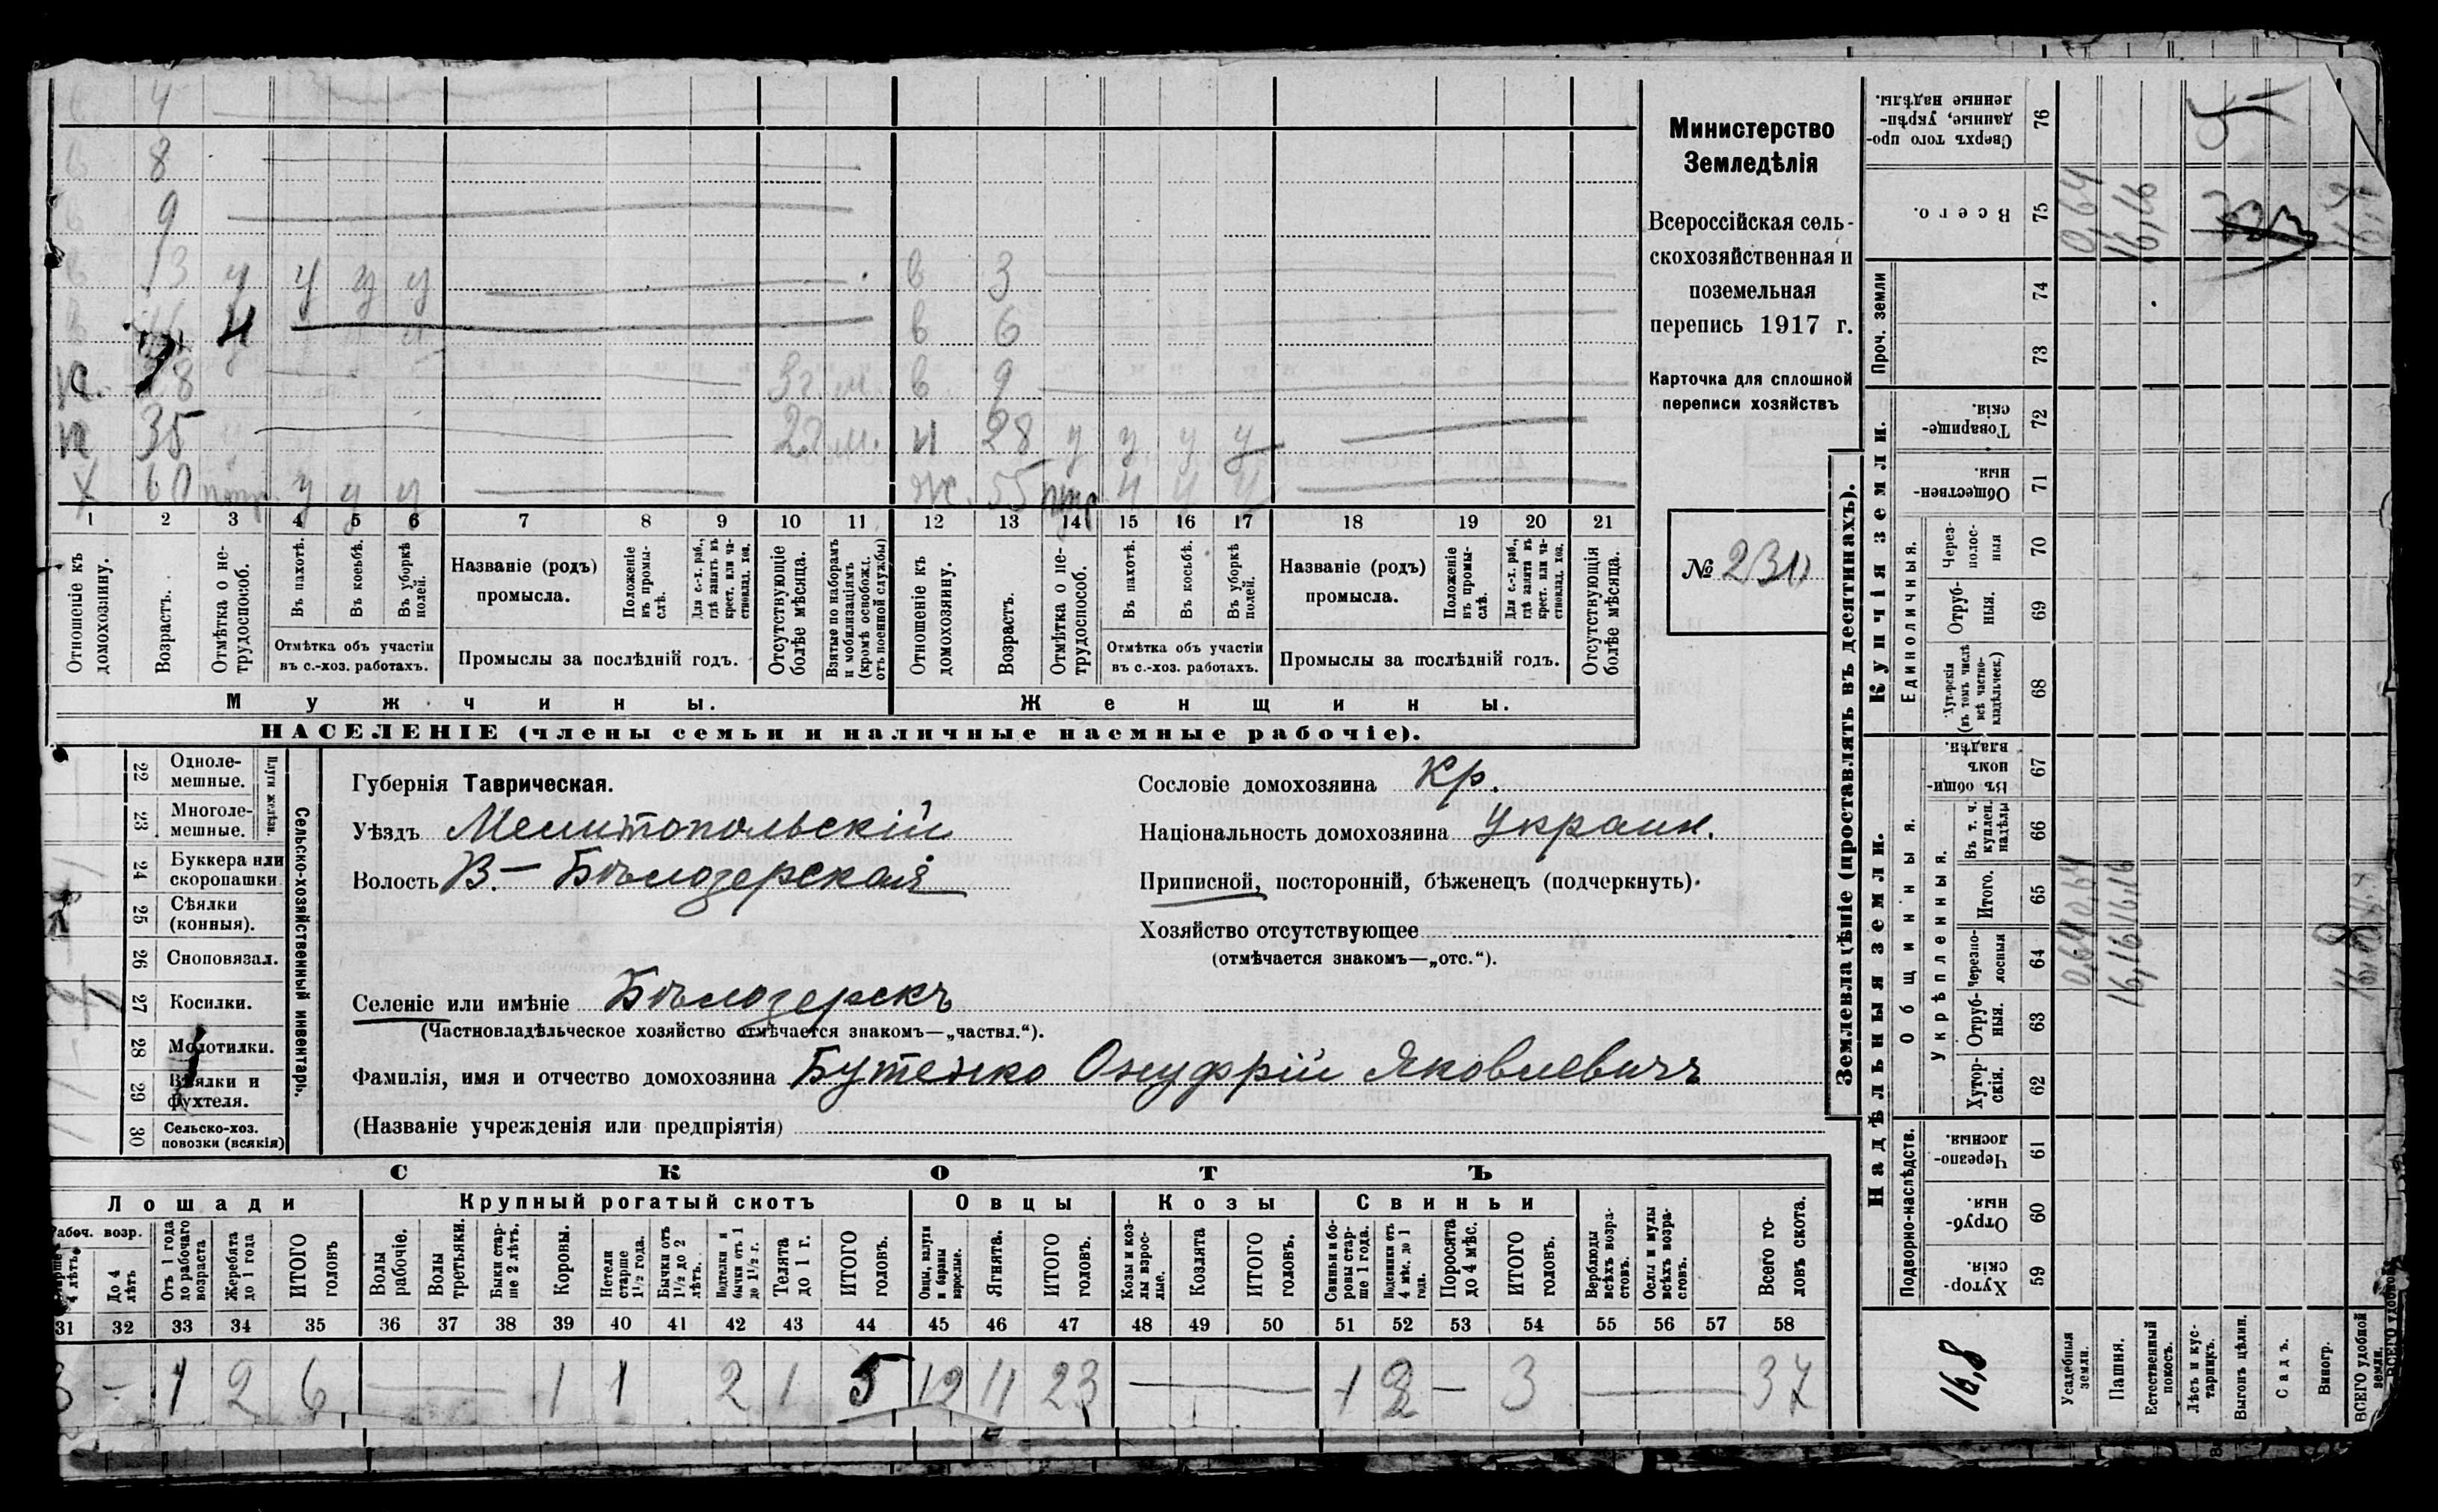 в 4
в 8
в 9
в 13 у у у у
в 3
в 6
п. 28 3 г. м.
в 9
п 35 2 г. м.
п 28 у у у у
х 60 попр. у у у
ж. 55 у у у
1 2 3 4 5 6 7 8 9 10 11 12 13 14 15 16 17 18 19 20 21
Отношеніе къ домохозяину.
Возрастъ.
Отмѣтка о не-
трудоспособ.
Въ пахотѣ.
Въ косьбѣ.
Въ уборкѣ полей.
Отмѣтка объ участіи
въ с.-хоз. работахъ.
Названіе (родъ)
промысла.
Положеніе въ промы-
слѣ.
Для с.-х. раб., гдѣ занятъ въ крест. или ча-
стновлад. хоз.
Промыслы за послѣдній годъ.
Отсутствующіе болѣе мѣсяца.
Взятые по наборамъ и мобилизаціямъ (кромѣ освобожд. отъ военной службы)
Отношеніе къ домохозяину.
Возрастъ.
Отмѣтка о не-
трудоспособ.
Въ пахотѣ.
Въ косьбѣ.
Въ уборкѣ полей.
Отмѣтка объ участіи
въ с.-хоз. работахъ.
Названіе (родъ)
промысла.
Положеніе въ промы-
слѣ.
Для с.-х. раб., гдѣ занята въ крест. или ча-
стновлад. хоз.
Промыслы за послѣдній годъ.
Отсутствующія болѣе мѣсяца.
Мужчины.
Женщины.
НАСЕЛЕНІЕ (члены семьи и наличные наемные рабочіе).
Министерство
Земледѣлія
Всероссійская сель-
скохозяйственная и
поземельная
перепись 1917 г.
Карточка для сплошной
переписи хозяйствъ
№ 230
22 Одноле-
мешные.
23 Многоле-
мешные.
Плуги желѣзн.
24 Буккера или
скоропашки
25 Сѣялки
(конныя).
26 Сноповязал.
27 Косилки.
28 Молотилки.
29 Вѣялки и
фухтеля.
30 Сельско-хоз.
повозки (всякія)
Сельско-хозяйственный инвентарь.
Губернія Таврическая.
Уѣздъ Мелитопольскій
Волость В.- Бѣлозерская
Селеніе или имѣніе Бѣлозерскъ
(Частновладѣльческое хозяйство отмѣчается знакомъ—„частвл.“).
Фамилія, имя и отчество домохозяина Бутенко Онуфрій Яковлевичъ
(Названіе учрежденія или предпріятія)
Сословіе домохозяина Кр.
Національность домохозяина Украин.
Приписной, посторонній, бѣженецъ (подчеркнуть).
Хозяйство отсутствующее
(отмѣчается знакомъ—„отс.“).
СКОТЪ
Лошади
Крупный рогатый скотъ
Овцы
Козы
Свиньи
Рабоч. возр.
Старше 4 лѣтъ
До 4 лѣтъ
Отъ 1 года до рабочаго возраста
Жеребята до 1 года
ИТОГО головъ
Волы рабочіе.
Волы третьяки.
Быки стар-
ше 2 лѣтъ.
Коровы.
Нетели старше 1½ года.
Бычки отъ 1½ до 2 лѣтъ.
Подтелки и бычки отъ 1 до 1½ г.
Телята до 1 г.
ИТОГО головъ.
Овцы, валухи и бараны взрослые.
Ягнята.
ИТОГО головъ.
Козы и коз-
лы взрос-
лые.
Козлята
ИТОГО головъ.
Свиньи и бо-
ровы стар-
ше 1 года.
Подсвинки отъ 4 мѣс. до 1 года.
Поросята до 4 мѣс.
ИТОГО головъ.
Верблюды всѣхъ возра-
стовъ.
Ослы и мулы всѣхъ возра-
стовъ.
Всего го-
ловъ скота.
31 32 33 34 35 36 37 38 39 40 41 42 43 44 45 46 47 48 49 50 51 52 53 54 55 56 57 58
3 – 1 2 6 — 1 1 2 1 5 12 11 23 — 1 2 – 3 — 37
Землевладѣніе (проставлять въ десятинахъ).
Купчія земли.
Надѣльныя земли.
Проч. земли
Единоличныя.
Общинныя.
Укрѣпленныя.
Подворно-наслѣдств.
Сверхъ того про-
данные, укрѣп-
ленные надѣлы.
76
Всего.
75
74
73
Товарище-
скія.
72
Обществен-
ныя.
71
Через-
полос-
ныя
70
Отруб-
ныя.
69
Хуторскія (въ томъ числѣ всѣ частно-
владѣльческ.)
68
Въ общин-
номъ
владѣн.
67
Въ т. ч. куплен. надѣлы
66
Итого.
65
Черезпо-
лосныя
64
Отруб-
ныя.
63
Хутор-
скія.
62
Черезпо-
лосныя.
61
Отруб-
ныя.
60
Хутор-
скія.
59
0,64
16,16
0,64 0,64
16,16 16,16
16,8
16,8
Усадебныя земли.
Пашня.
Естественный покосъ.
Лѣсъ и кус-
тарникъ.
Выгонъ цѣлин.
Садъ.
Виногр.
ВСЕГО удобной земли.